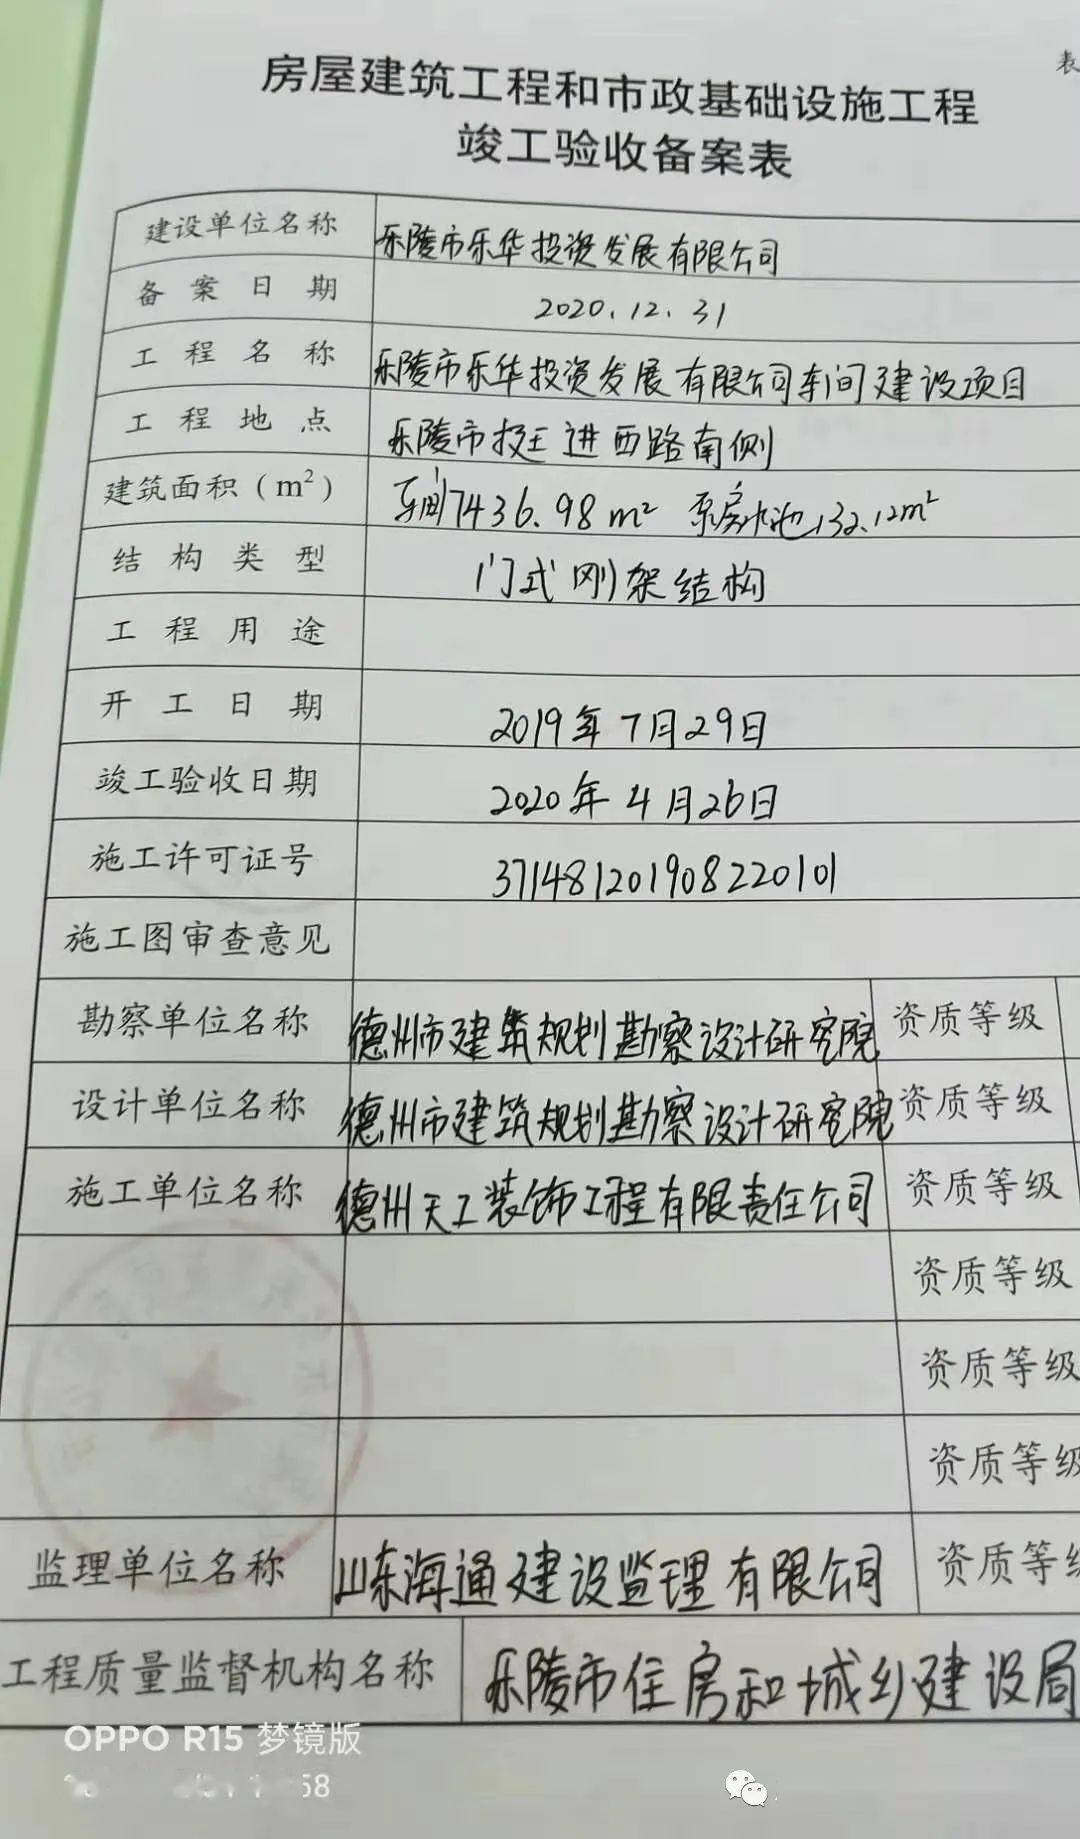 表
房屋建筑工程和市政基础设施工程
竣工验收备案表
建设单位名称 乐陵市乐华投资发展有限公司
备案日期 2020.12.31
工程名称 乐陵市乐华投资发展有限公司车间建设项目
工程地点 乐陵市挺进西路南侧
建筑面积(m²) 车间7436.98m² 泵房水池132.12m²
结构类型 门式刚架结构
工程用途
开工日期 2019年7月29日
竣工验收日期 2020年4月26日
施工许可证号 371481201908220101
施工图审查意见
勘察单位名称 德州市建筑规划勘察设计研究院 资质等级
设计单位名称 德州市建筑规划勘察设计研究院 资质等级
施工单位名称 德州天工装饰工程有限责任公司 资质等级
资质等级
资质等级
资质等级
监理单位名称 山东海通建设监理有限公司 资质等级
工程质量监督机构名称 乐陵市住房和城乡建设局
OPPO R15 梦镜版